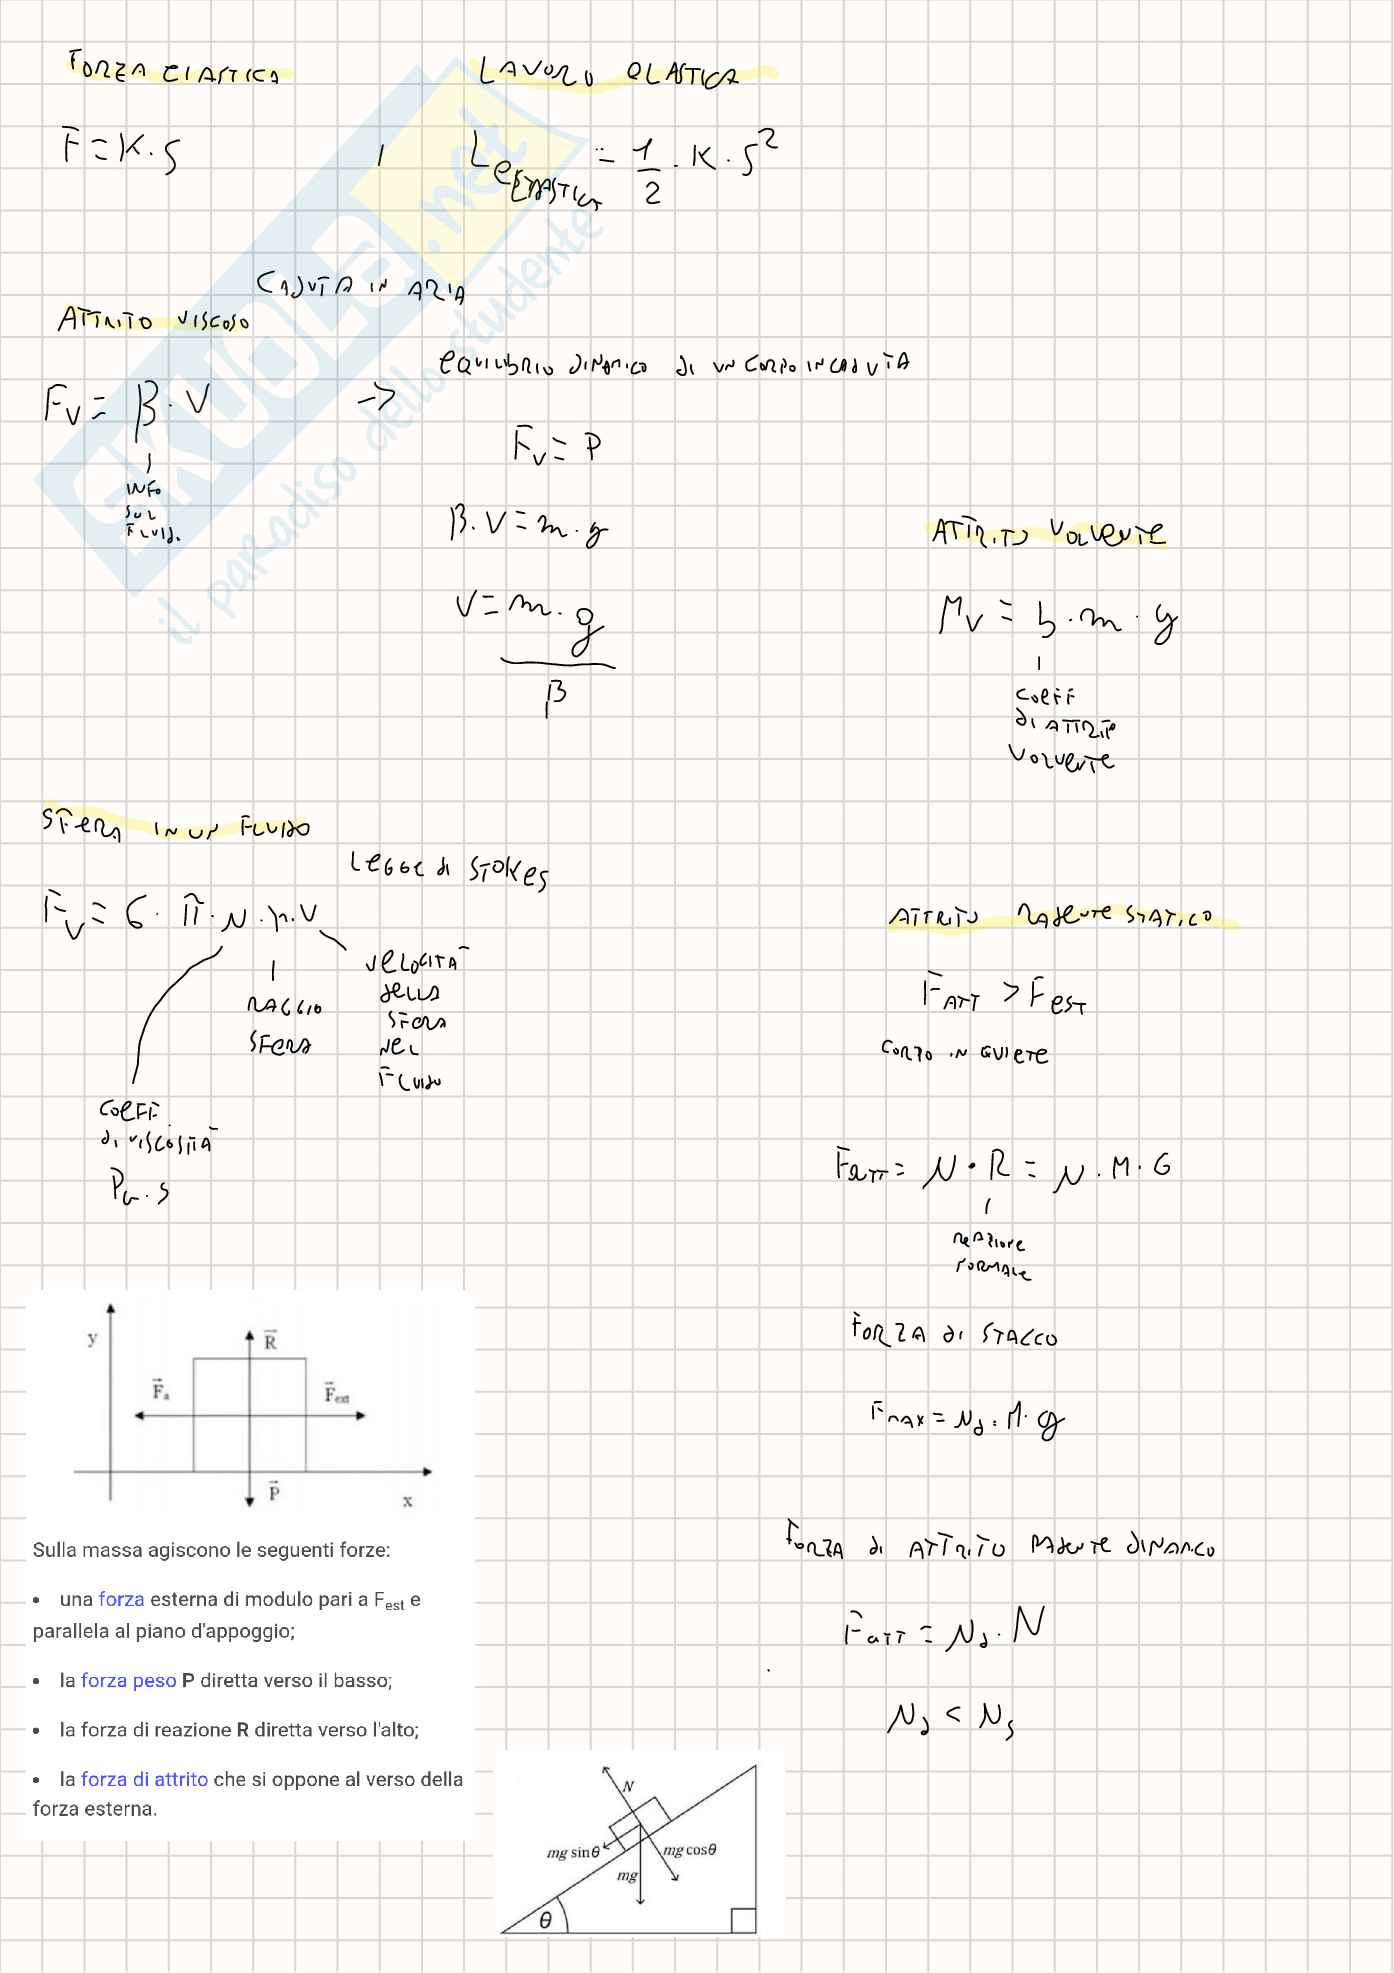 FORZA ELASTICA
F = K · S
LAVORO ELASTICA
L ELASTICA = 1/2 · K · S²
CADUTA IN ARIA
ATTRITO VISCOSO
Fv = β · V →
INFO
SUL
FLUIDO
EQUILIBRIO DINAMICO DI UN CORPO IN CADUTA
Fv = P
β · V = m · g
V = m · g
β
ATTRITO VOLVENTE
Mv = b · m · g
COEFF
DI ATTRITO
VOLVENTE
SFERA IN UN FLUIDO
LEGGE DI STOKES
Fv = 6 · π · μ · r · V
RAGGIO
SFERA
VELOCITÀ
DELLA
SFERA
NEL
FLUIDO
COEFF.
DI VISCOSITÀ
Pa · s
ATTRITO RADENTE STATICO
F ATT > F EST
CORPO IN QUIETE
F ATT = μ · R = μ · M · G
REAZIONE
NORMALE
FORZA DI STACCO
F MAX = μs · M · g
FORZA DI ATTRITO RADENTE DINAMICO
F ATT = μd · N
μd < μs
y
R
Fa
Fext
P
x
Sulla massa agiscono le seguenti forze:
• una forza esterna di modulo pari a Fest e
parallela al piano d'appoggio;
• la forza peso P diretta verso il basso;
• la forza di reazione R diretta verso l'alto;
• la forza di attrito che si oppone al verso della
forza esterna.
N
mg sinθ
mg cosθ
mg
θ
SKUOLA.net
il paradiso dello studente